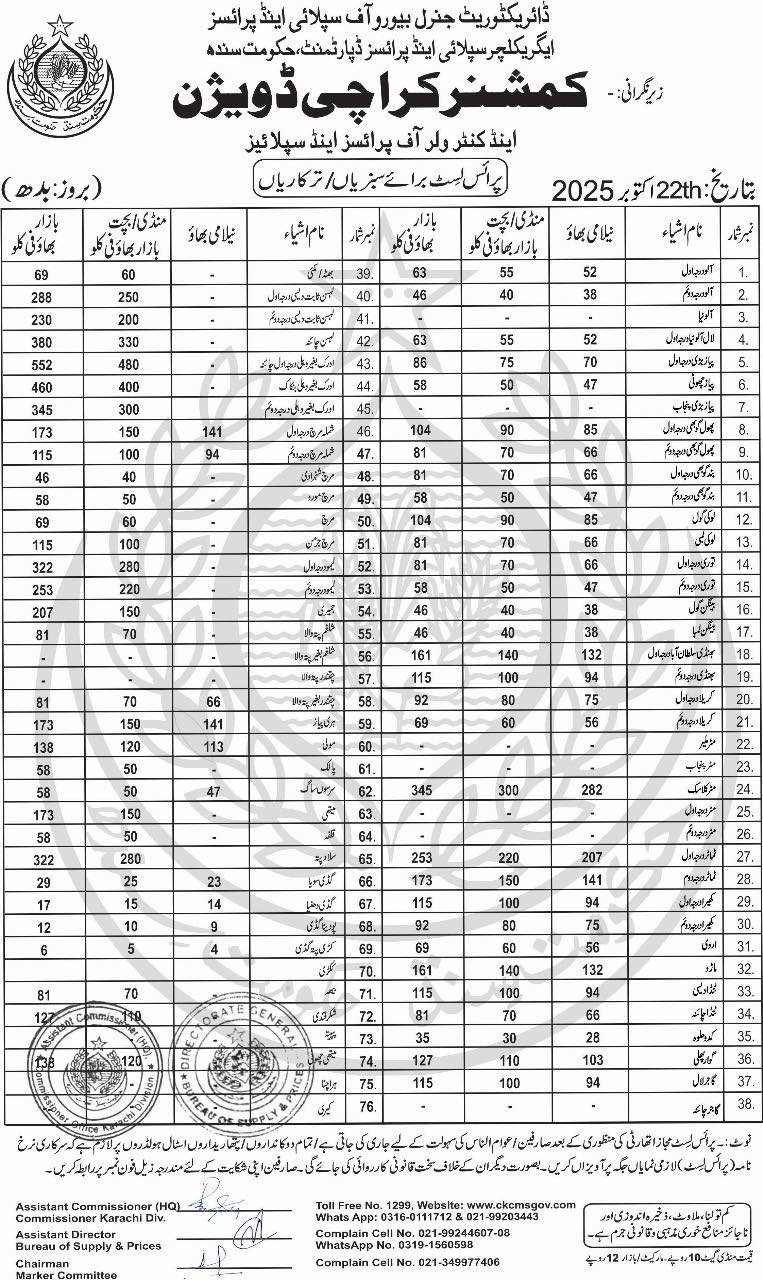 ڈائریکٹوریٹ جنرل بیورو آف سپلائی اینڈ پرائسز
ایگریکلچر سپلائی اینڈ پرائسز ڈپارٹمنٹ، حکومت سندھ
زیر نگرانی:- کمشنر کراچی ڈویژن
اینڈ کنٹرولر آف پرائسز اینڈ سپلائیز
پرائس لسٹ برائے سبزیاں/ترکاریاں
بتاریخ: 22th اکتوبر 2025 (بروز: بدھ)
نمبر شمار نام اشیاء نیلامی بھاؤ منڈی/بچت بازار بھاؤ فی کلو بازار بھاؤ فی کلو
1. آلو درجہ اول 52 55 63
2. آلو درجہ دوئم 38 40 46
3. آلو نیا - - -
4. لال آلو نیا درجہ اول 52 55 63
5. پیاز بڑی درجہ اول 70 75 86
6. پیاز چھوٹی 47 50 58
7. پیاز بڑی پنجاب - - -
8. پھول گوبھی درجہ اول 85 90 104
9. پھول گوبھی درجہ دوئم 66 70 81
10. بند گوبھی درجہ اول 66 70 81
11. بند گوبھی درجہ دوئم 47 50 58
12. لوکی گول 85 90 104
13. لوکی لمبی 66 70 81
14. توری درجہ اول 66 70 81
15. توری درجہ دوئم 47 50 58
16. بینگن گول 38 40 46
17. بینگن لمبا 38 40 46
18. بھنڈی سلطان آباد درجہ اول 132 140 161
19. بھنڈی درجہ دوئم 94 100 115
20. کریلا درجہ اول 75 80 92
21. کریلا درجہ دوئم 56 60 69
22. مٹر ملیر - - -
23. مٹر پنجاب - - -
24. مٹر کلاسک 282 300 345
25. مٹر درجہ اول - - -
26. مٹر درجہ دوئم - - -
27. ٹماٹر درجہ اول 207 220 253
28. ٹماٹر درجہ دوم 141 150 173
29. کھیرا درجہ اول 94 100 115
30. کھیرا درجہ دوئم 75 80 92
31. اروی 56 60 69
32. ماڑو 132 140 161
33. ٹنڈا دیسی 94 100 115
34. ٹنڈا چائنہ 66 70 81
35. کدو حلوہ 28 30 35
36. گوار پھلی 103 110 127
37. گاجر لال 94 100 115
38. گاجر چائنہ
نمبر شمار نام اشیاء نیلامی بھاؤ منڈی/بچت بازار بھاؤ فی کلو بازار بھاؤ فی کلو
39. بھٹہ/مکئی - 60 69
40. لہسن ثابت دیسی درجہ اول - 250 288
41. لہسن ثابت دیسی درجہ دوئم - 200 230
42. لہسن چائنہ - 330 380
43. ادرک بغیر دھلی درجہ اول چائنہ - 480 552
44. ادرک بغیر دھلی بنکاک - 400 460
45. ادرک بغیر دھلی درجہ دوئم 300 345
46. شملہ مرچ درجہ اول 141 150 173
47. شملہ مرچ درجہ دوئم 94 100 115
48. مرچ شہزادی - 40 46
49. مرچ مورو - 50 58
50. مرچ - 60 69
51. مرچ جرمن - 100 115
52. لیمو درجہ اول - 280 322
53. لیمو درجہ دوئم - 220 253
54. - 150 207
55. شلغم پتہ والا - 70 81
56. شلغم بغیر پتہ والا - - -
57. چقندر پتہ والا - - -
58. چقندر بغیر پتہ والا 66 70 81
59. ہری پیاز 141 150 173
60. مولی 113 120 138
61. پالک - 50 58
62. سرسوں ساگ 47 50 58
63. میتھی - 150 173
64. قلفہ - 50 58
65. سلاد پتہ - 280 322
66. گڈی سویا 23 25 29
67. گڈی دھنیا 14 15 17
68. پودینا گڈی 9 10 12
69. کڑی پتہ گڈی 4 5 6
70. ککڑی
71. - 70 81
72. شکر قندی 110 127
73. پپیتہ
74. میتھی چھوٹی 120 138
75. ہرا چنا
76. کیری
Assistant Commissioner (HQ)
Commissioner Office Karachi Division
DIRECTORATE GENERAL
BUREAU OF SUPPLY & PRICES
نوٹ:۔ پرائس لسٹ مجاز اتھارٹی کی منظوری کے بعد صارفین/عوام الناس کی سہولت کے لیے جاری کی جاتی ہے/تمام دوکانداروں/پتھاریداروں اسٹال ہولڈروں پر لازم ہے کہ سرکاری نرخ
نامہ (پرائس لسٹ) لازمی نمایاں جگہ پر آویزاں کریں۔ بصورت دیگر ان کے خلاف سخت قانونی کارروائی کی جائے گی۔ صارفین اپنی شکایت کے لئے مندرجہ زیل فون نمبر پر رابطہ کریں۔
Assistant Commissioner (HQ)
Commissioner Karachi Div.
Assistant Director
Bureau of Supply & Prices
Chairman
Marker Committee
Toll Free No. 1299, Website: www.ckcmsgov.com
Whats App: 0316-0111712 & 021-99203443
Complain Cell No. 021-99244607-08
WhatsApp No. 0319-1560598
Complain Cell No. 021-349977406
کم تولنا، ملاوٹ، ذخیرہ اندوزی اور
ناجائز منافع خوری مذہبی و قانونی جرم ہے۔
قیمت منڈی گیٹ 10 روپے۔ مارکیٹ/بازار 12 روپے